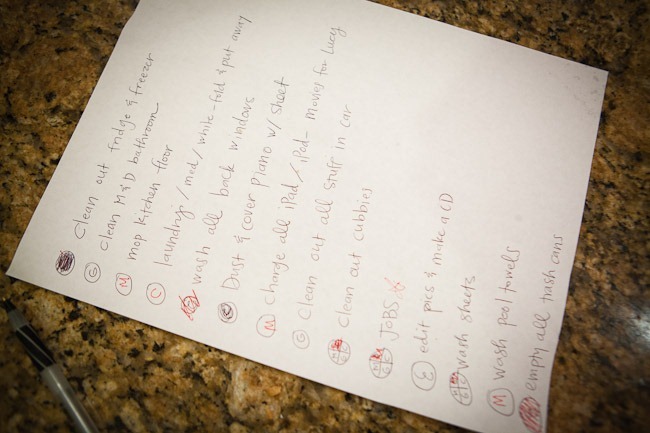 Clean out fridge & freezer
G clean M&D bathroom
M mop kitchen floor
C laundry/med/white-fold & put away
wash all back windows
C Dust & cover piano w/ sheet
M charge all iPad/iPod- movies for Lucy
G Clean out all stuff in car
Clean out cubbies
JOBS
E edit pics & make a CD
wash sheets
M wash pool towels
empty all trash cans